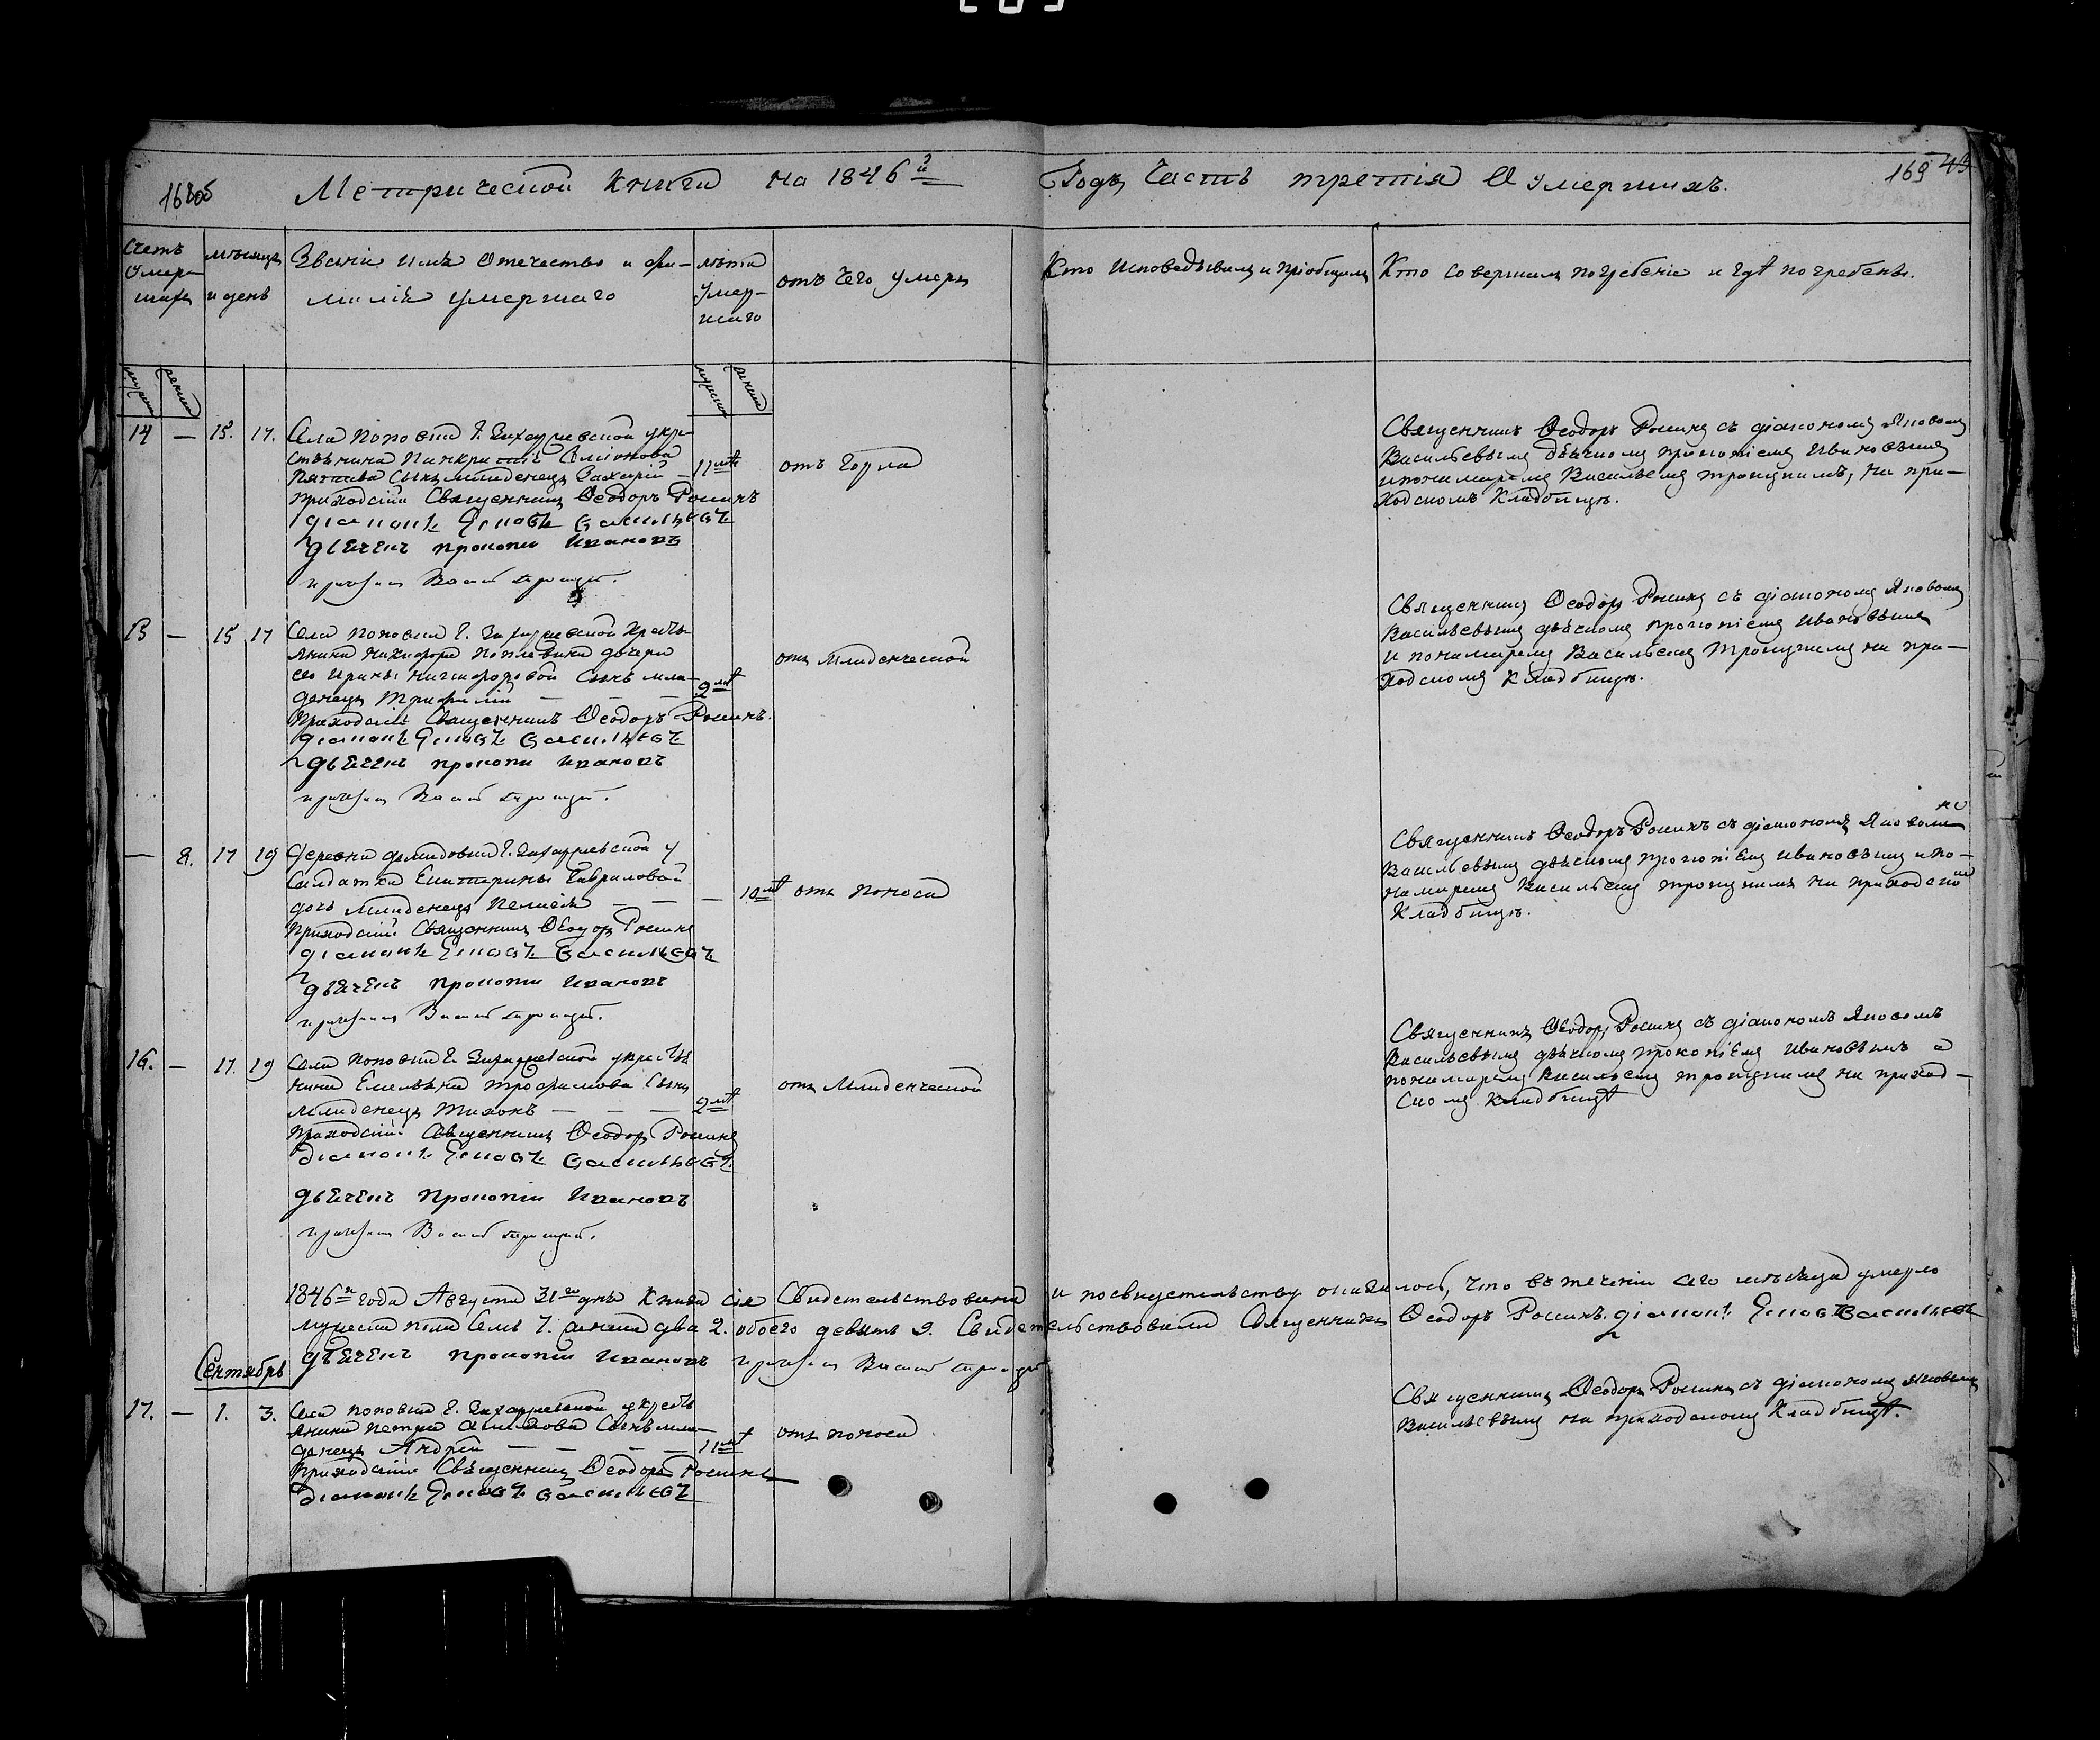 168об
Метрической Книги на 1846й
Годъ Часть третія О умершихъ.
169 43
Счетъ Умершихъ
мѣсяцъ и день
Званіе имя Отечество и фа-
милія умершаго
лѣта умер-
шаго
отъ Чего умеръ
Кто Исповедывалъ и пріобщалъ
Кто совершалъ погребеніе и гдѣ погребены.
14 — 15. 17. Села Поповки Г. Захаржевской укре-
стьянина Панкратія
сынъ младенецъ Захарій — 11 мѣ
отъ Горла
приходскій Священникъ Ѳеодоръ Рощинъ
діаконъ Яковъ Васильевъ
дьячекъ прокопіи Ивановъ
Священникъ Ѳеодоръ Рощинъ съ діакономъ Яковомъ
Васильевымъ дьячкомъ прокопіемъ Ивановымъ
и пономаремъ Васильемъ троицкимъ, на при-
ходскомъ Кладбищѣ.
15 — 15 17 Села Попо­вки Г. Захаржевской крестья-
янина Никифора дочери
его Ирины Никифоровой Сынъ мла-
денецъ Трифилій — — — 9 мѣ
отъ Младенческой
Приходскій Священникъ Ѳеодоръ Рощинъ.
діаконъ Яковъ Васильевъ
дьячекъ прокопи Ивановъ
Священникъ Ѳеодоръ Рощинъ съ діакономъ Яковомъ
Васильевымъ дьячкомъ прокопіемъ Ивановымъ
и пономаремъ Васильемъ Троицкимъ на при-
ходскомъ Кладбищѣ.
— 2. 17 19 Деревни Демидовки Г. Захаржевской у
Солдатки Екатерины Гавриловой
дочь младенецъ Пелагея — — — 10 мѣ
отъ поноса
Приходскій Священникъ Ѳеодоръ Рощинъ
діаконъ Яковъ Васильевъ
дьячекъ прокопи Ивановъ
Священникъ Ѳеодоръ Рощинъ съ діакономъ Яковомъ
Васильевымъ дьячкомъ прокопіемъ Ивановымъ и по-
намаремъ Васильемъ троицкимъ на приходском
Кладбищѣ.
16. — 17. 19 Села Попо­вки Г. Захаржевской укрестья
нина Емельяна Трофимова Сынъ
младенецъ Тихонъ — — — 2 мѣ
отъ Младенческой
Приходскій Священникъ Ѳеодоръ Рощинъ
діаконъ Яковъ Васильевъ
дьячекъ Прокопіи Ивановъ
Священникъ Ѳеодоръ Рощинъ съ діакономъ Яковомъ
Васильевымъ дьячкомъ прокопіемъ Ивановымъ и
пономаремъ Васильемъ троицкимъ на приход-
скомъ Кладбищѣ
1846го года Августа 31го дня Книга сія Свидетельствована и посвидетельству оказалось, что въ теченіи сего мѣсяца умерло
мужеска пола Семь 7. женска два 2. обоего девять 9. Свидетельствовали Священникъ Ѳеодоръ Рощинъ. діаконъ Яковъ Васильевъ
дьячекъ прокопи Ивановъ
Сентябрь
17. — 1. 3. Села Попо­вки Г. Захаржевской укрестья
янина Петра Сынъ мла-
денецъ Андрей — — — — 11 мѣ
отъ поноса
Приходскій Священникъ Ѳеодоръ Рощинъ
діаконъ Яковъ Васильевъ
Священникъ Ѳеодоръ Рощинъ съ діакономъ Яковомъ
Васильевымъ на приходскомъ Кладбищѣ.